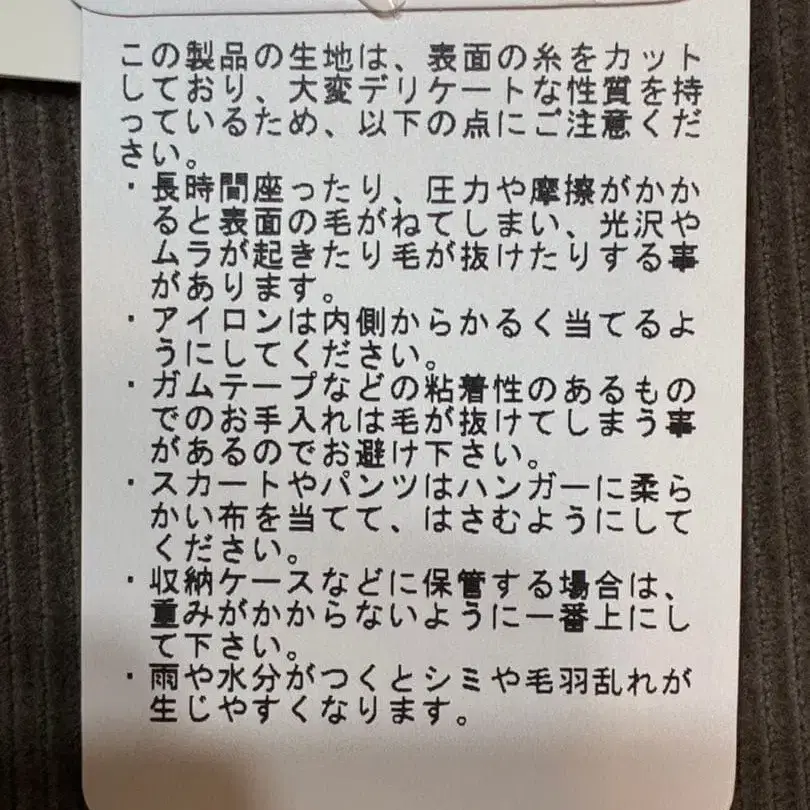 この製品の生地は、表面の糸をカット
しており、大変デリケートな性質を持
っているため、以下の点にご注意くだ
さい。
・長時間座ったり、圧力や摩擦がかか
ると表面の毛がねてしまい、光沢や
ムラが起きたり毛が抜けたりする事
があります。
・アイロンは内側からかるく当てるよ
うにしてください。
・ガムテープなどの粘着性のあるもの
でのお手入れは毛が抜けてしまう事
があるのでお避け下さい。
・スカートやパンツはハンガーに柔ら
かい布を当てて、はさむようにして
ください。
・収納ケースなどに保管する場合は、
重みがかからないように一番上にし
て下さい。
・雨や水分がつくとシミや毛羽乱れが
生じやすくなります。